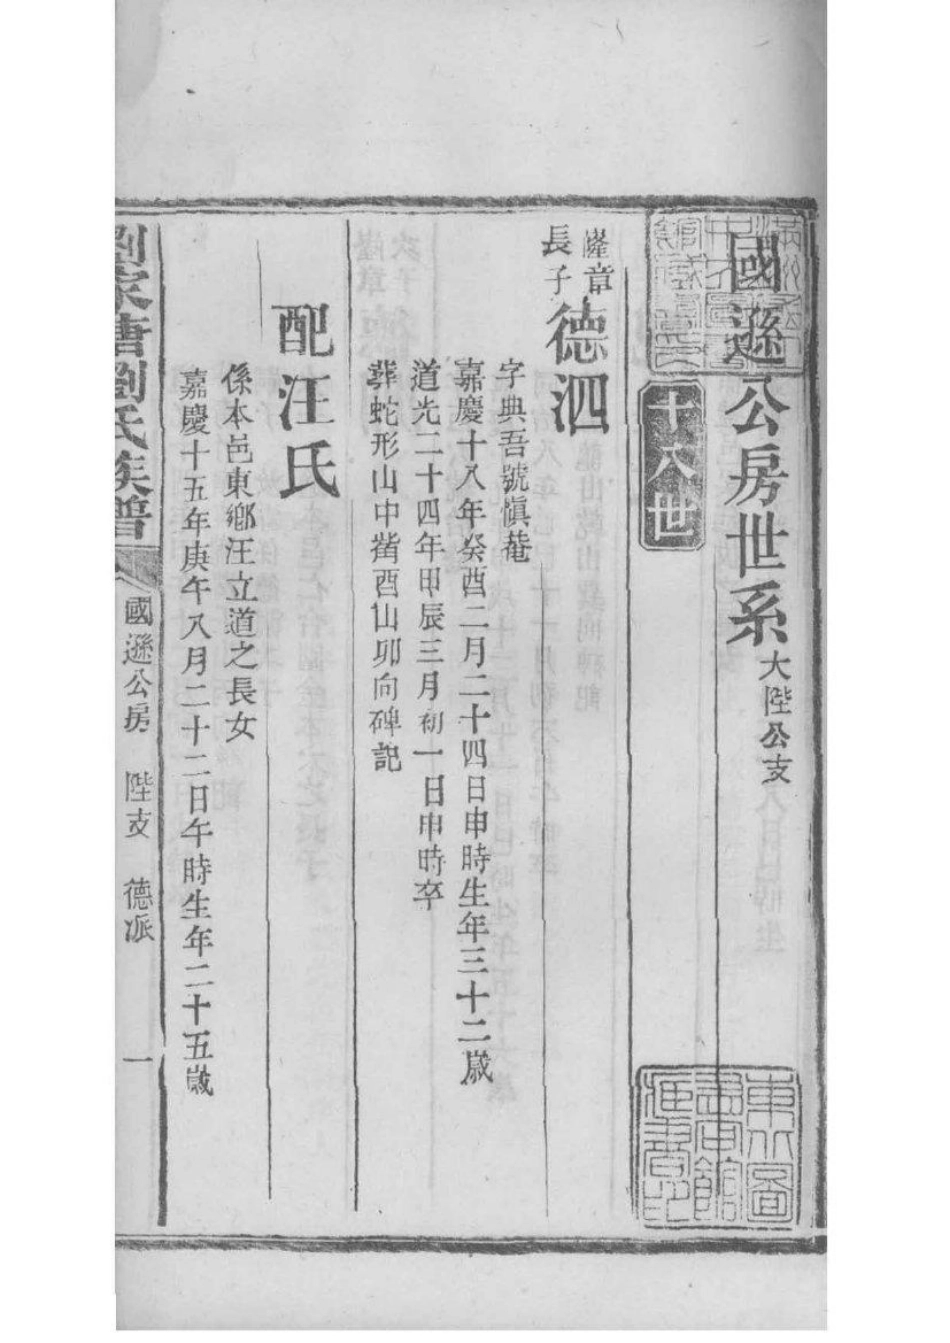 國遜公房世系大陛公支
十八世
隆章
長子
德泗
字典吾號愼菴
嘉慶十八年癸酉二月二十四日申時生年三十二歲
道光二十四年甲辰三月初一日申時卒
葬蛇形山中嘴酉山卯向碑記
配汪氏
係本邑東鄉汪立道之長女
嘉慶十五年庚午八月二十二日午時生年二十五歲
劉家唐劉氏族譜
國遜公房 陛支 德派 一